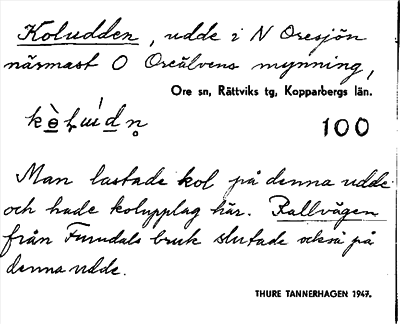 Koludden, udde i N Oresjön
närmast O Oreälvens mynning,
Ore sn, Rättviks tg, Kopparbergs län.
100
Man lastade kol på denna udde
och hade kolupplag här. Rallvägen
från Furudals bruk slutade också på
denna udde.
THURE TANNERHAGEN 1947.